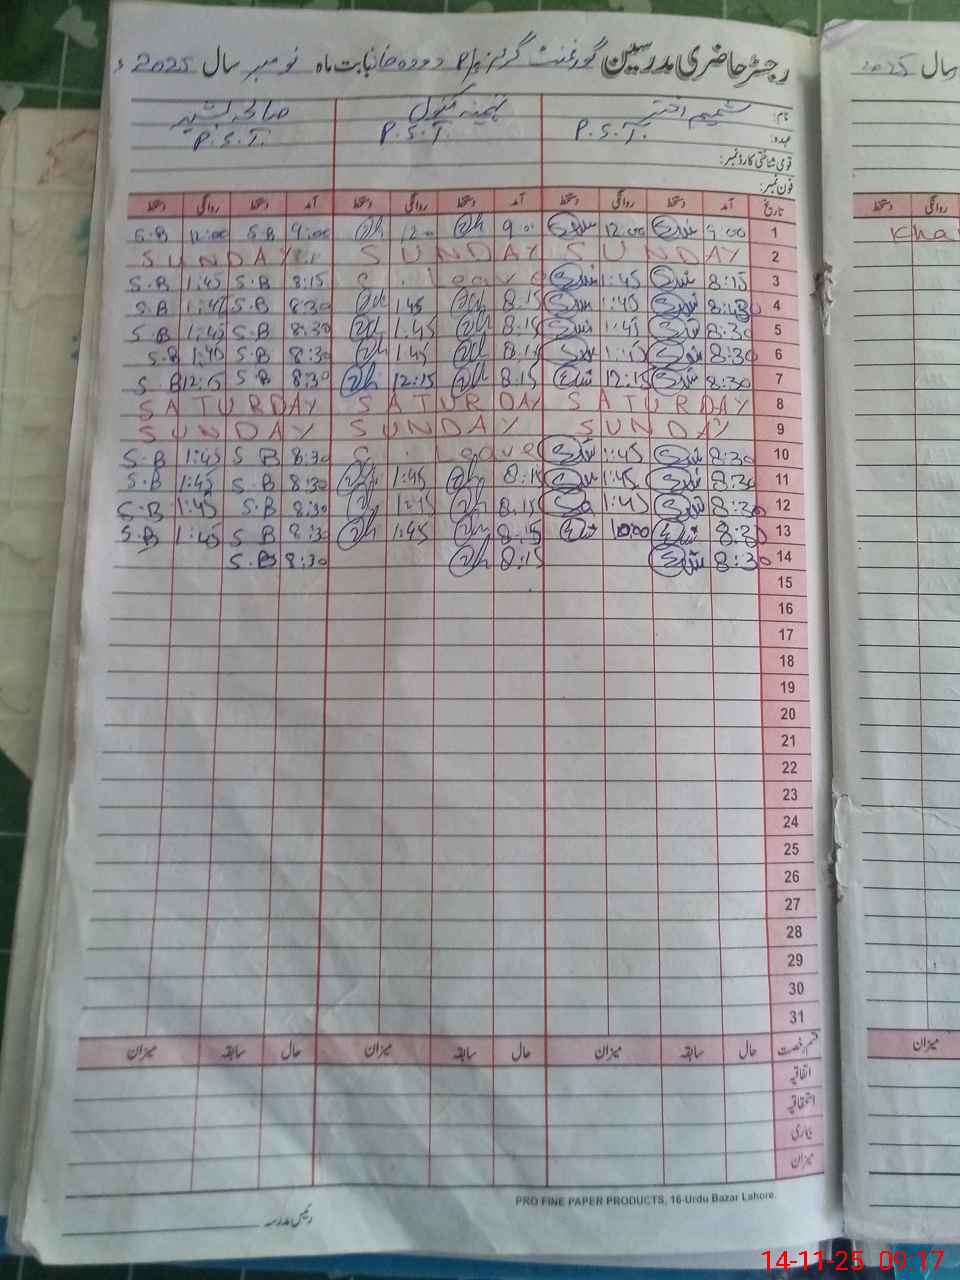 رجسٹر حاضری مدرسین گورنمنٹ گرلز P/S دودہ خان بابت ماہ نومبر سال 2025ء
نام: شمیم اختر تہمینہ کنول صالحہ بشیر
عہدہ: P.S.T. P.S.T. P.S.T.
قومی شناختی کارڈ نمبر:
فون نمبر:
تاریخ آمد دستخط روانگی دستخط آمد دستخط روانگی دستخط آمد دستخط روانگی دستخط
1 9:00 12:00 9:00 12:00 9:00 S.B 12:00 S.B
2 SUNDAY SUNDAY SUNDAY
3 8:15 1:45 C. Leave 8:15 S.B 1:45 S.B
4 8:30 1:45 8:15 1:45 8:30 S.B 1:45 S.B
5 8:30 1:45 8:15 1:45 8:30 S.B 1:45 S.B
6 8:30 1:45 8:15 1:45 8:30 S.B 1:45 S.B
7 8:30 12:15 8:15 12:15 8:30 S.B 12:15 S.B
8 SATURDAY SATURDAY SATURDAY
9 SUNDAY SUNDAY SUNDAY
10 8:30 1:45 C. Leave 8:30 S.B 1:45 S.B
11 8:30 1:45 8:15 1:45 8:30 S.B 1:45 S.B
12 8:30 1:45 8:15 1:45 8:30 S.B 1:45 S.B
13 8:30 10:00 8:15 1:45 8:30 S.B 1:45 S.B
14 8:30 8:15 8:30 S.B
15
16
17
18
19
20
21
22
23
24
25
26
27
28
29
30
31
قسم رخصت حال سابقہ میزان حال سابقہ میزان حال سابقہ میزان
اتفاقیہ
استحقاقیہ
بیماری
میزان
PRO FINE PAPER PRODUCTS, 16-Urdu Bazar Lahore.
رئیس مدرسہ
سال 2025
روانگی دستخط
Kha
میزان
14-11-25 09:17